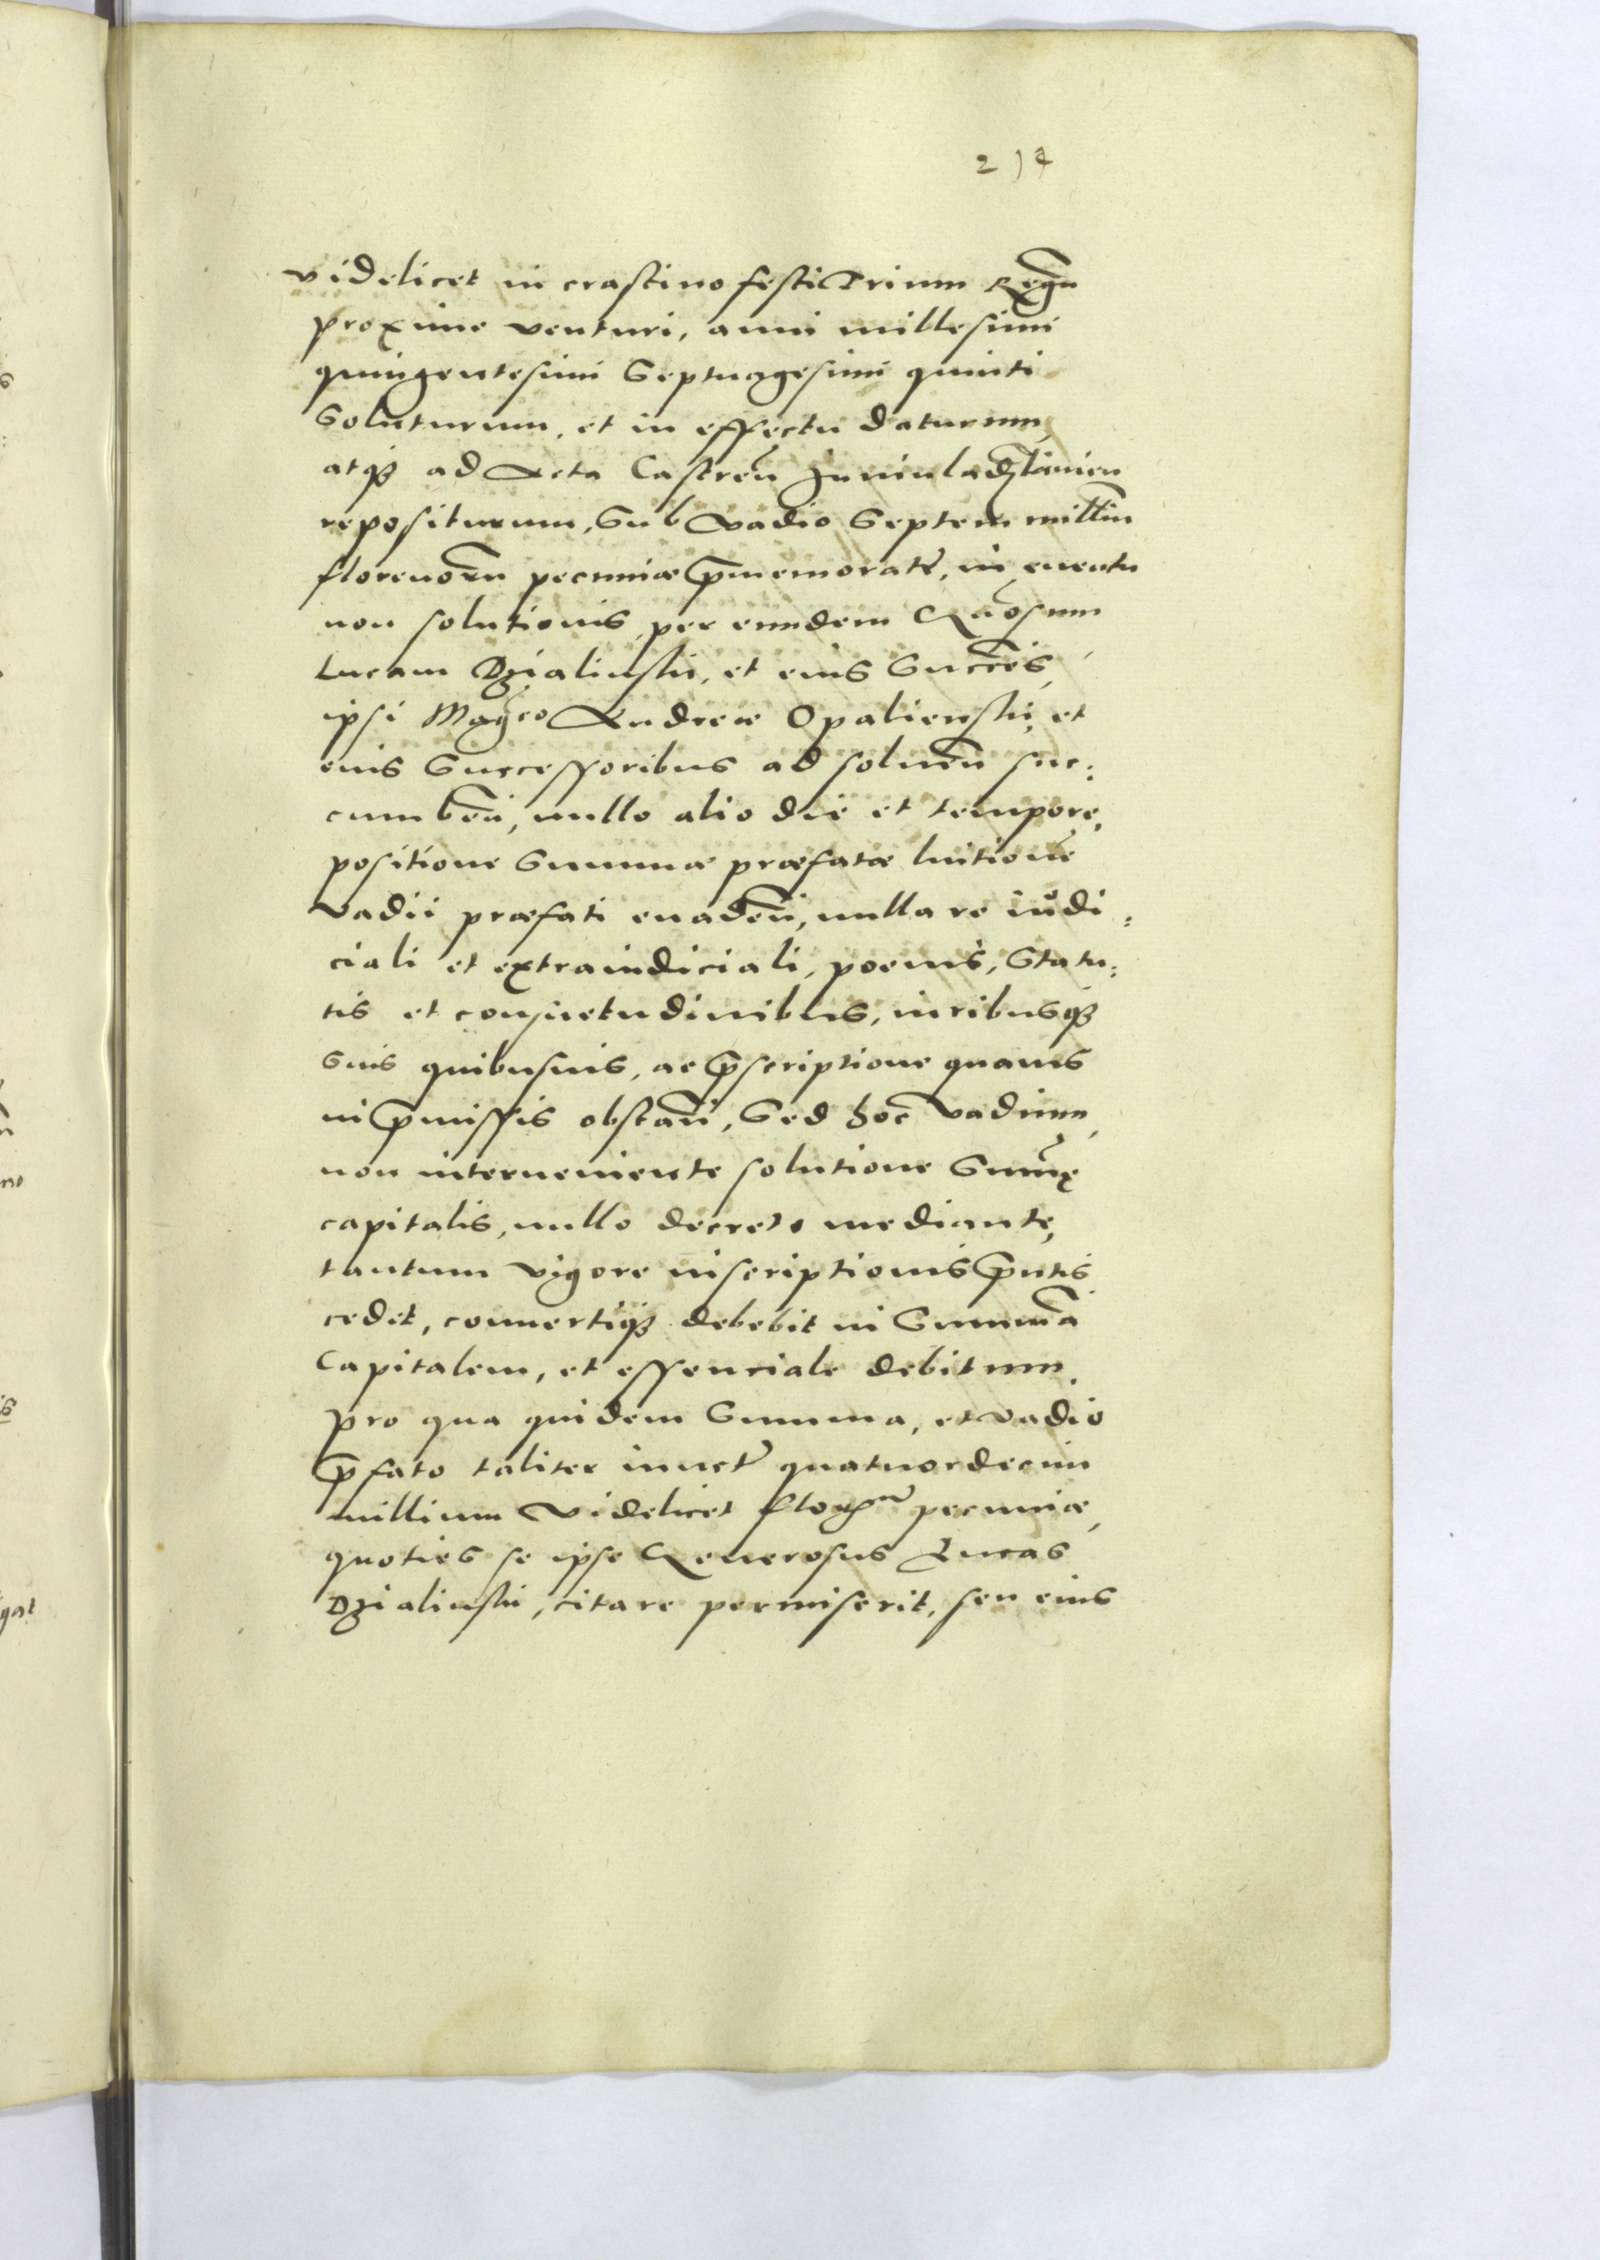 214
videlicet in crastino festi Trium Regu̅
proxime venturi, anni millesimi
quingentesimi Septuagesimi quinti
Soluturum, et in effectu daturum,
atq3 ad Acta Castren̅ Iuniuladislauien
repositurum, Sub vadio Septem millin̅
florenoru̅ pecuniæ p̅memorate, in euentu
non solutionis per eundem Gn̅osum
Lucam Dzialinsky, et eius Succ̅es,
ipsi Mag̅co Andreæ Opalienski, et
euis Successoribus ad soluen̅ suc:
cumben̅, nullo alio die et tempore,
positione Summæ præfatæ luitione̅
vadii præfati euaden̅, nulla re iudi:
ciali et extraiudiciali, poenis, Statu:
tis et consuetudinibus, iuribusq3
Suis quibusuis, ac p̅scriptione quauis
in p̅missis obstan̅, Sed hoc vadium,
non interueniente solutione Sum̅ę
capitalis, nullo decreto mediante,
tantum vigore inscriptionis p̅ntis
cedet, conuertiq3 debebit in Summa̅
Capitalem, et essenciale debitum.
Pro qua quidem Summa, et vadio
p̅fato taliter iunct̅ quatuordecim
millium videlicet flor̅ pecuniæ,
quoties se ipse Generosus Lucas
Dzialinski, citare permiserit, seu eius